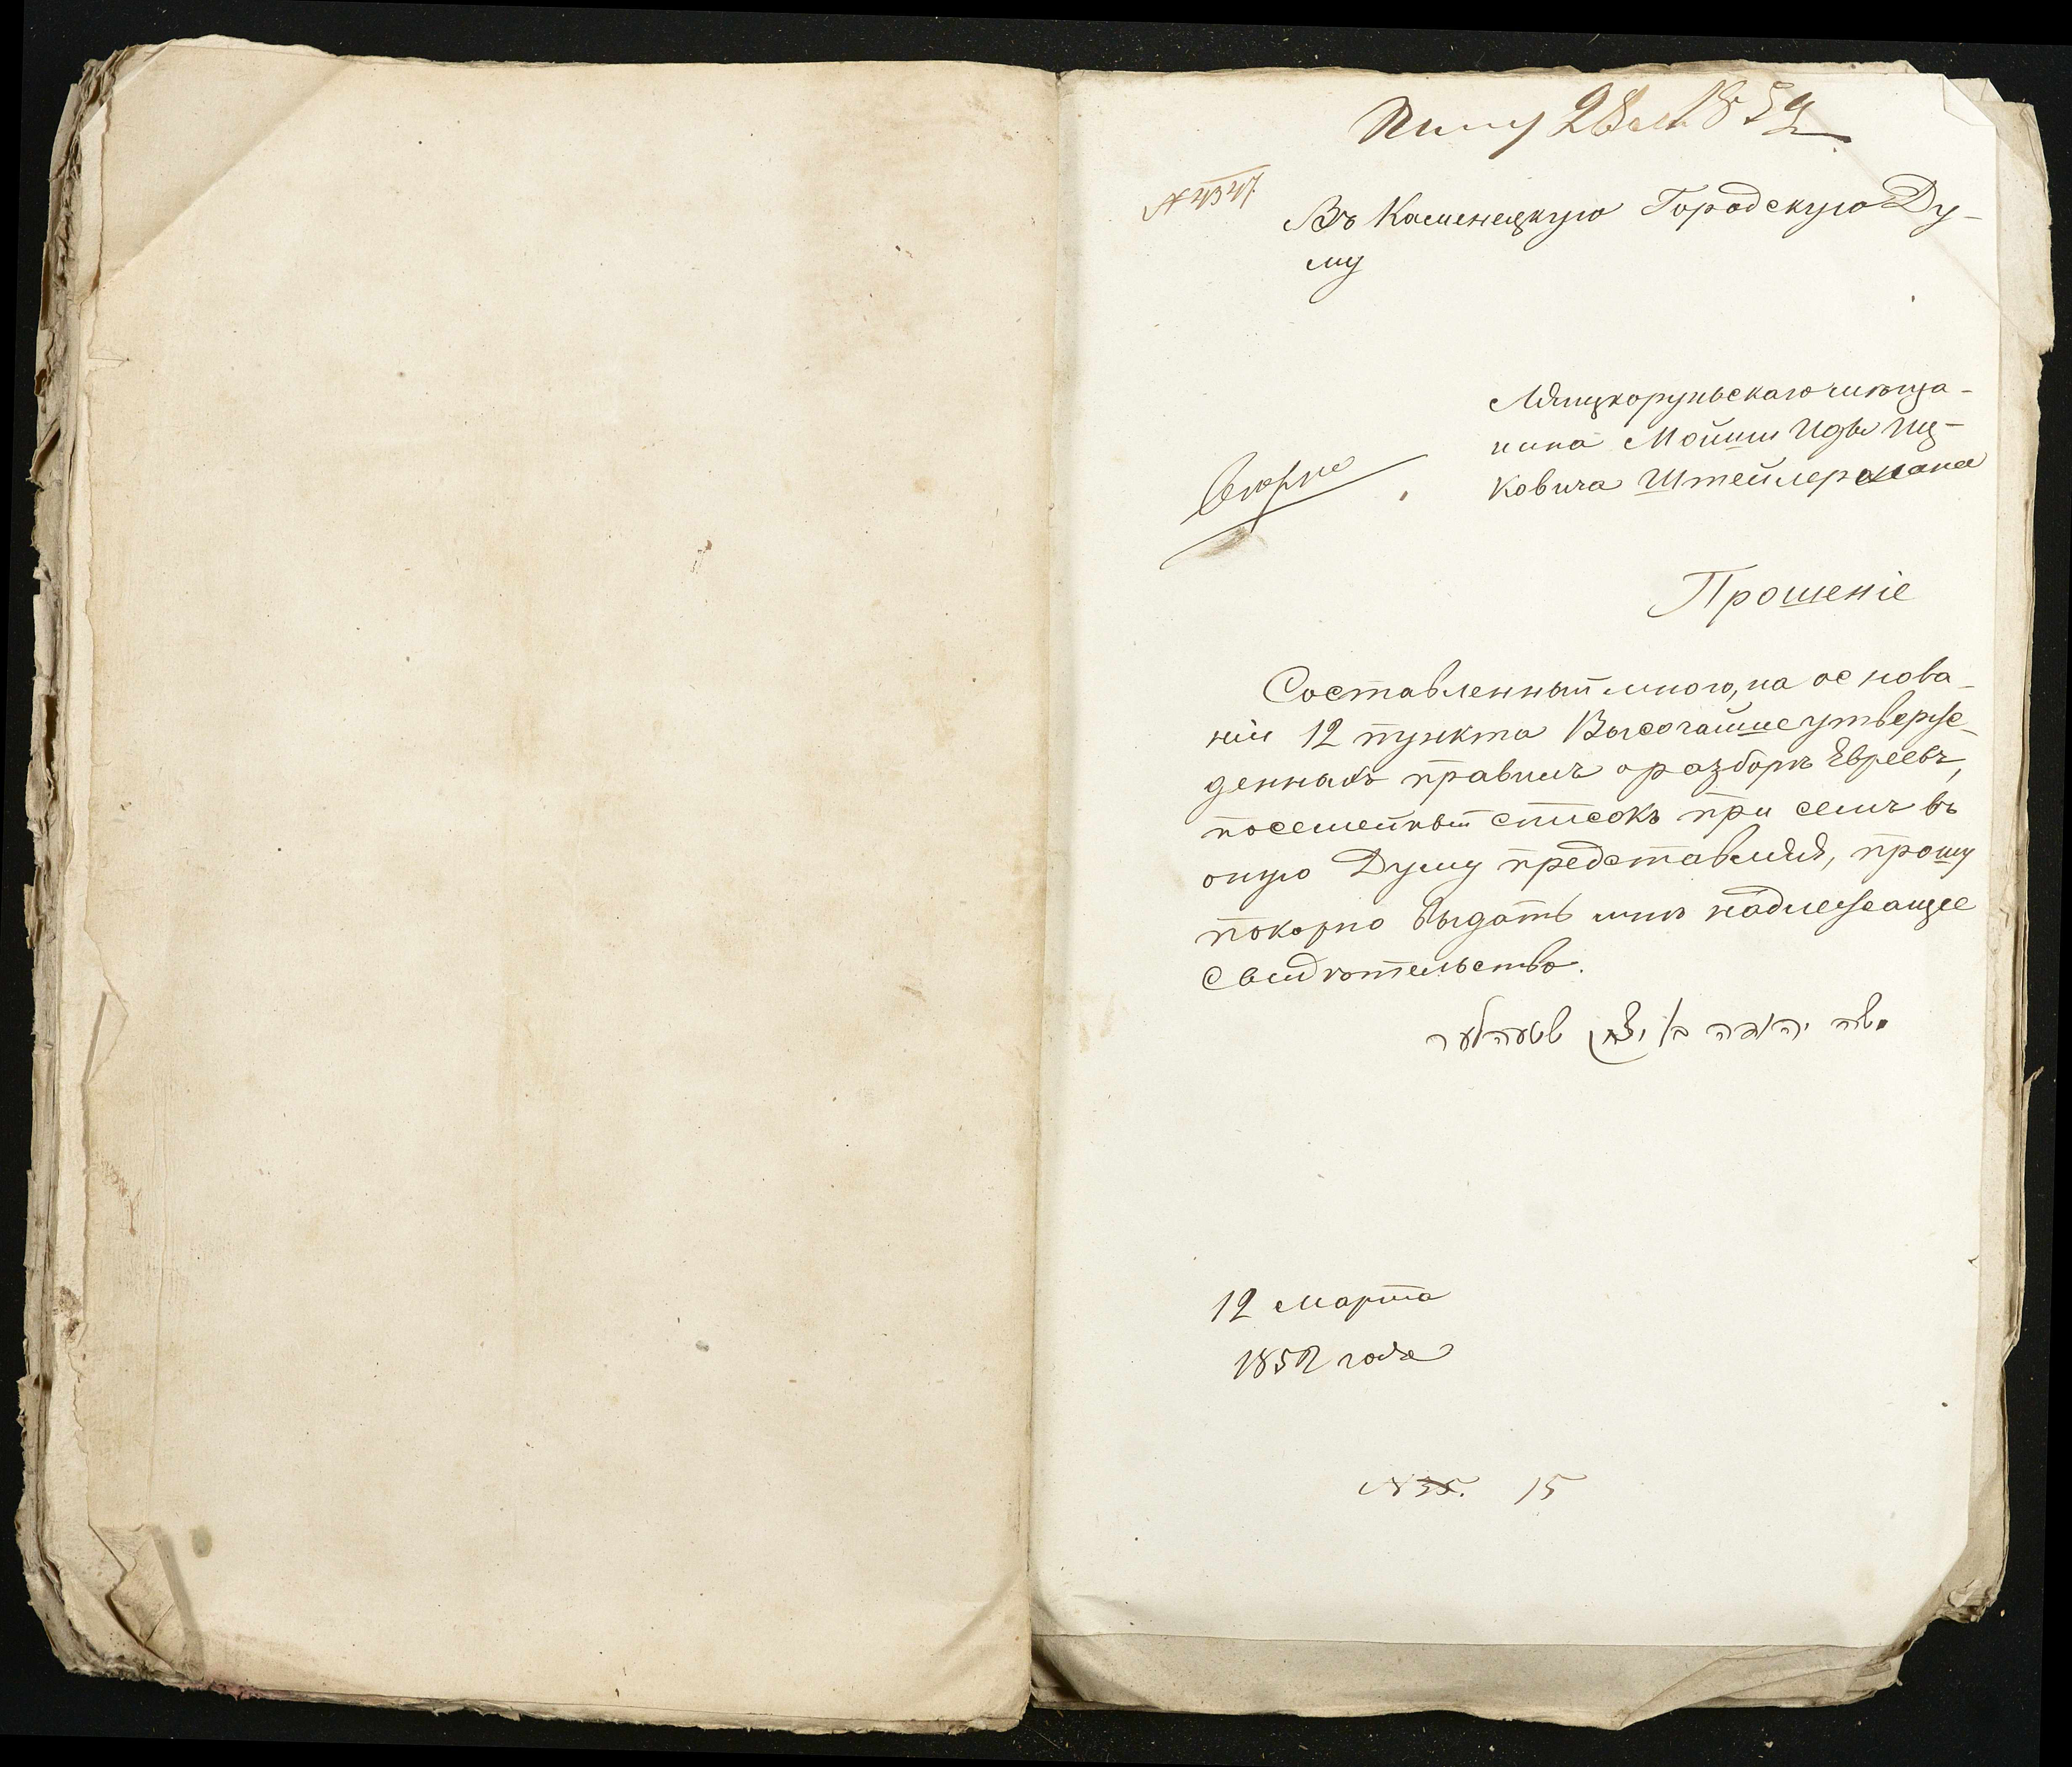 № 4347
Въ Каменецкую Городскую Ду-
му
Ляицкоруньскаго мѣща-
нина Мойши Иды Иц-
ковича Штейлермана
Прошеніе
Составленный мною, на основа-
ніи 12 пункта Высочайше утверж-
денныхъ правилъ о разборѣ Евреевъ,
посемейный списокъ при семъ въ
оную Думу представляя, прошу
покорно выдать мнѣ надлежащее
свидѣтельство.
משה יהודה ב׳ יצחק
12 Марта
1852 года
№ 35. 15